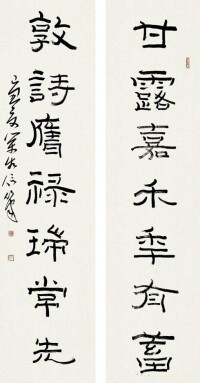 甘露嘉禾年有蓄
敦詩膺禄瑞常先